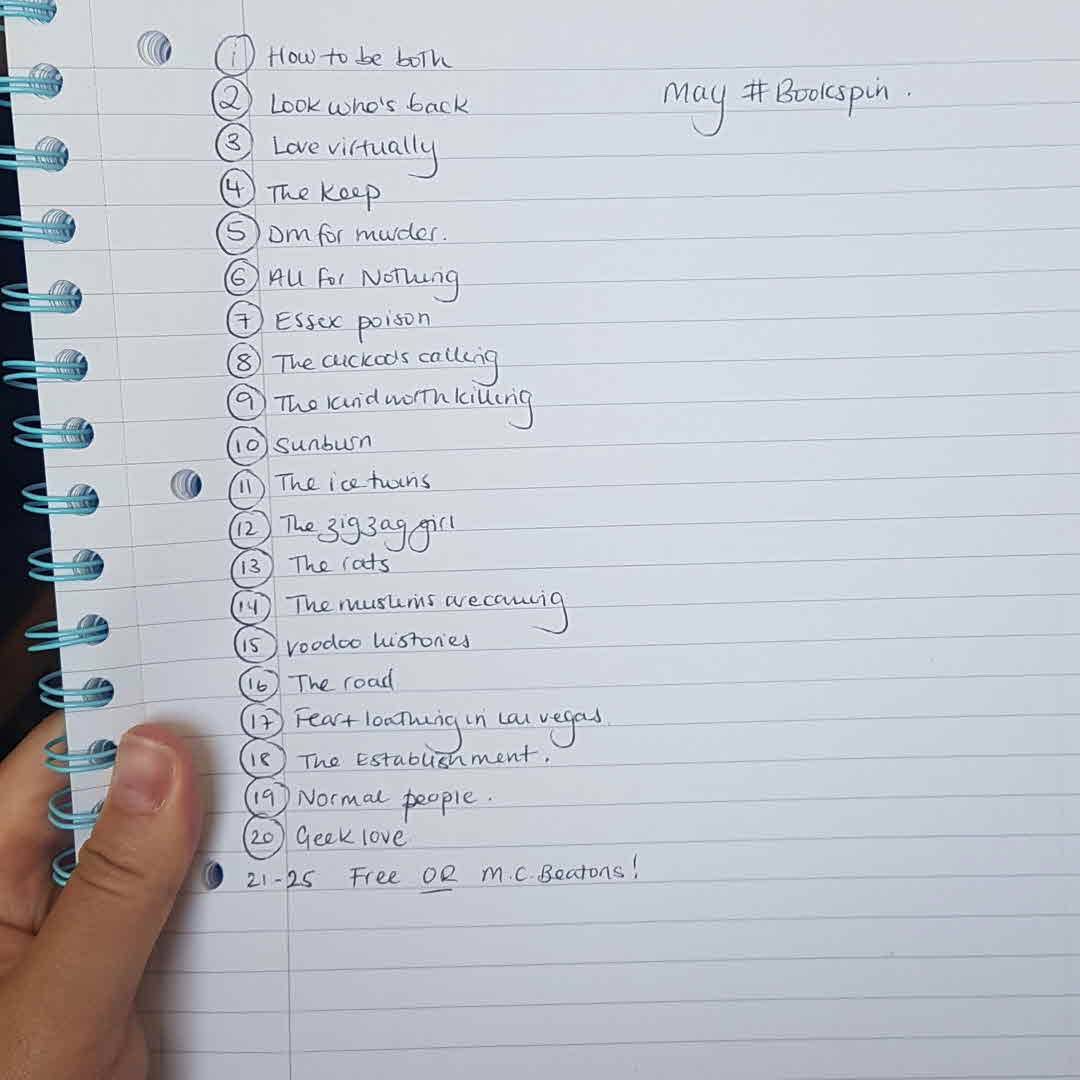 May #Bookspin.
1 How to be both
2 Look who's back
3 Love virtually
4 The Keep
5 Dm for murder.
6 All for Nothing
7 Essex poison
8 The cuckoos calling
9 The kind worth killing
10 Sunburn
11 The ice twins
12 The zig zag girl
13 The rats
14 The muslims are coming
15 voodoo histories
16 The road
17 Fear + loathing in Las vegas.
18 The Establishment.
19 Normal people.
20 Geek love
21-25 Free OR M.C. Beatons!